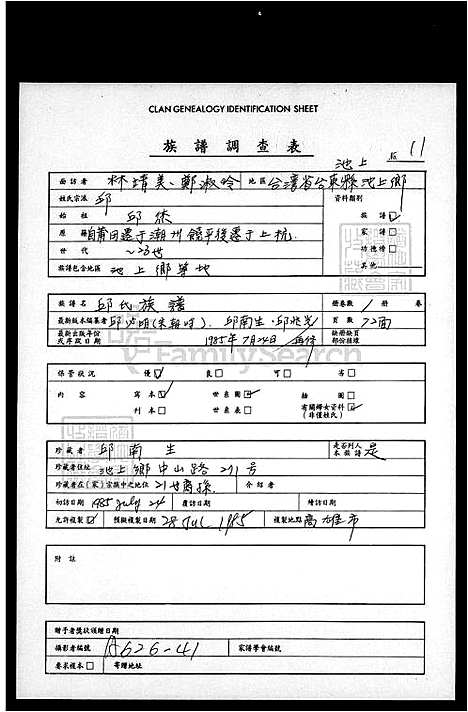 CLAN GENEALOGY IDENTIFICATION SHEET
族譜調查表
池上 11
面訪者 林靖美、鄭淑玲 地區 台灣省台東縣池上鄉
姓氏宗派 邱 資料類別
始祖 邱 族譜
原籍 自莆田遷于潮州饒平後遷于上杭. 家譜
世代 ~23世 功德榜
族譜包含地區 池上鄉等地 其他
族譜名 邱氏族譜 冊卷數 1 冊 卷
最新版本編纂者 邱 明(宋朝時). 邱南生.邱兆光 頁數 72面
最新出版年份或序跋日期 1985年7月24日 缺冊缺頁部份描錄
FamilySearch
保管狀況 優 良 可 劣
內容 寫本 世系圖 插圖
刊本 世系表 有關婦女資料(非僅姓氏)
珍藏者 邱南生 是否列入本族譜 是
珍藏者住址 池上鄉中山路271号
珍藏者在(家)宗族中之地位 21世裔孫 介紹者
初訪日期 1985 July 24 覆訪日期 續訪日期
允許複製 預擬複製日期 28 Jul 1985 複製地點 高雄市
附註
贈予者獎狀頒贈日期
攝影者編號 A626-41 家譜學會編號
要求複本 寄贈地址